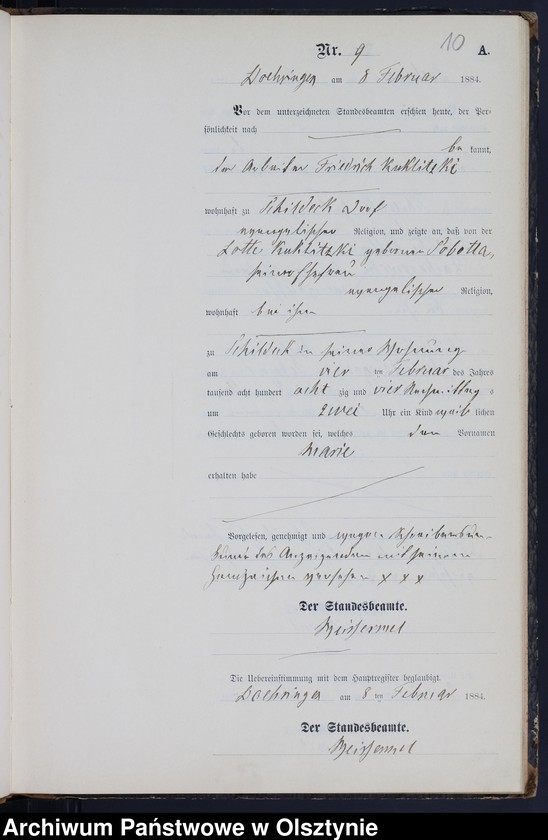 10
Nr. 9 A.
Doehringen am 8 Februar 1884.
Vor dem unterzeichneten Standesbeamten erschien heute, der Per-
sönlichkeit nach
be kannt,
der Arbeiter Friedrich Kuklitzki
wohnhaft zu Schildeck Dorf
evangelischer Religion, und zeigte an, daß von der
Lotte Kuklitzki geborenen Sobotta,
seiner Ehefrau
evangelischer Religion,
wohnhaft bei ihm
zu Schildeck in seiner Wohnung
am vier ten Februar des Jahres
tausend acht hundert acht zig und vier Nachmittag s
um zwei Uhr ein Kind weib lichen
Geschlechts geboren worden sei, welches den Vornamen
Marie
erhalten habe
Vorgelesen, genehmigt und wegen Schreibens un-
kunde des Anzeigenden mit seinem
Handzeichen versehen x x x
Der Standesbeamte.
Meissermel
Die Uebereinstimmung mit dem Hauptregister beglaubigt.
Doehringen am 8 ten Februar 1884.
Der Standesbeamte.
Meissermel
Archiwum Państwowe w Olsztynie